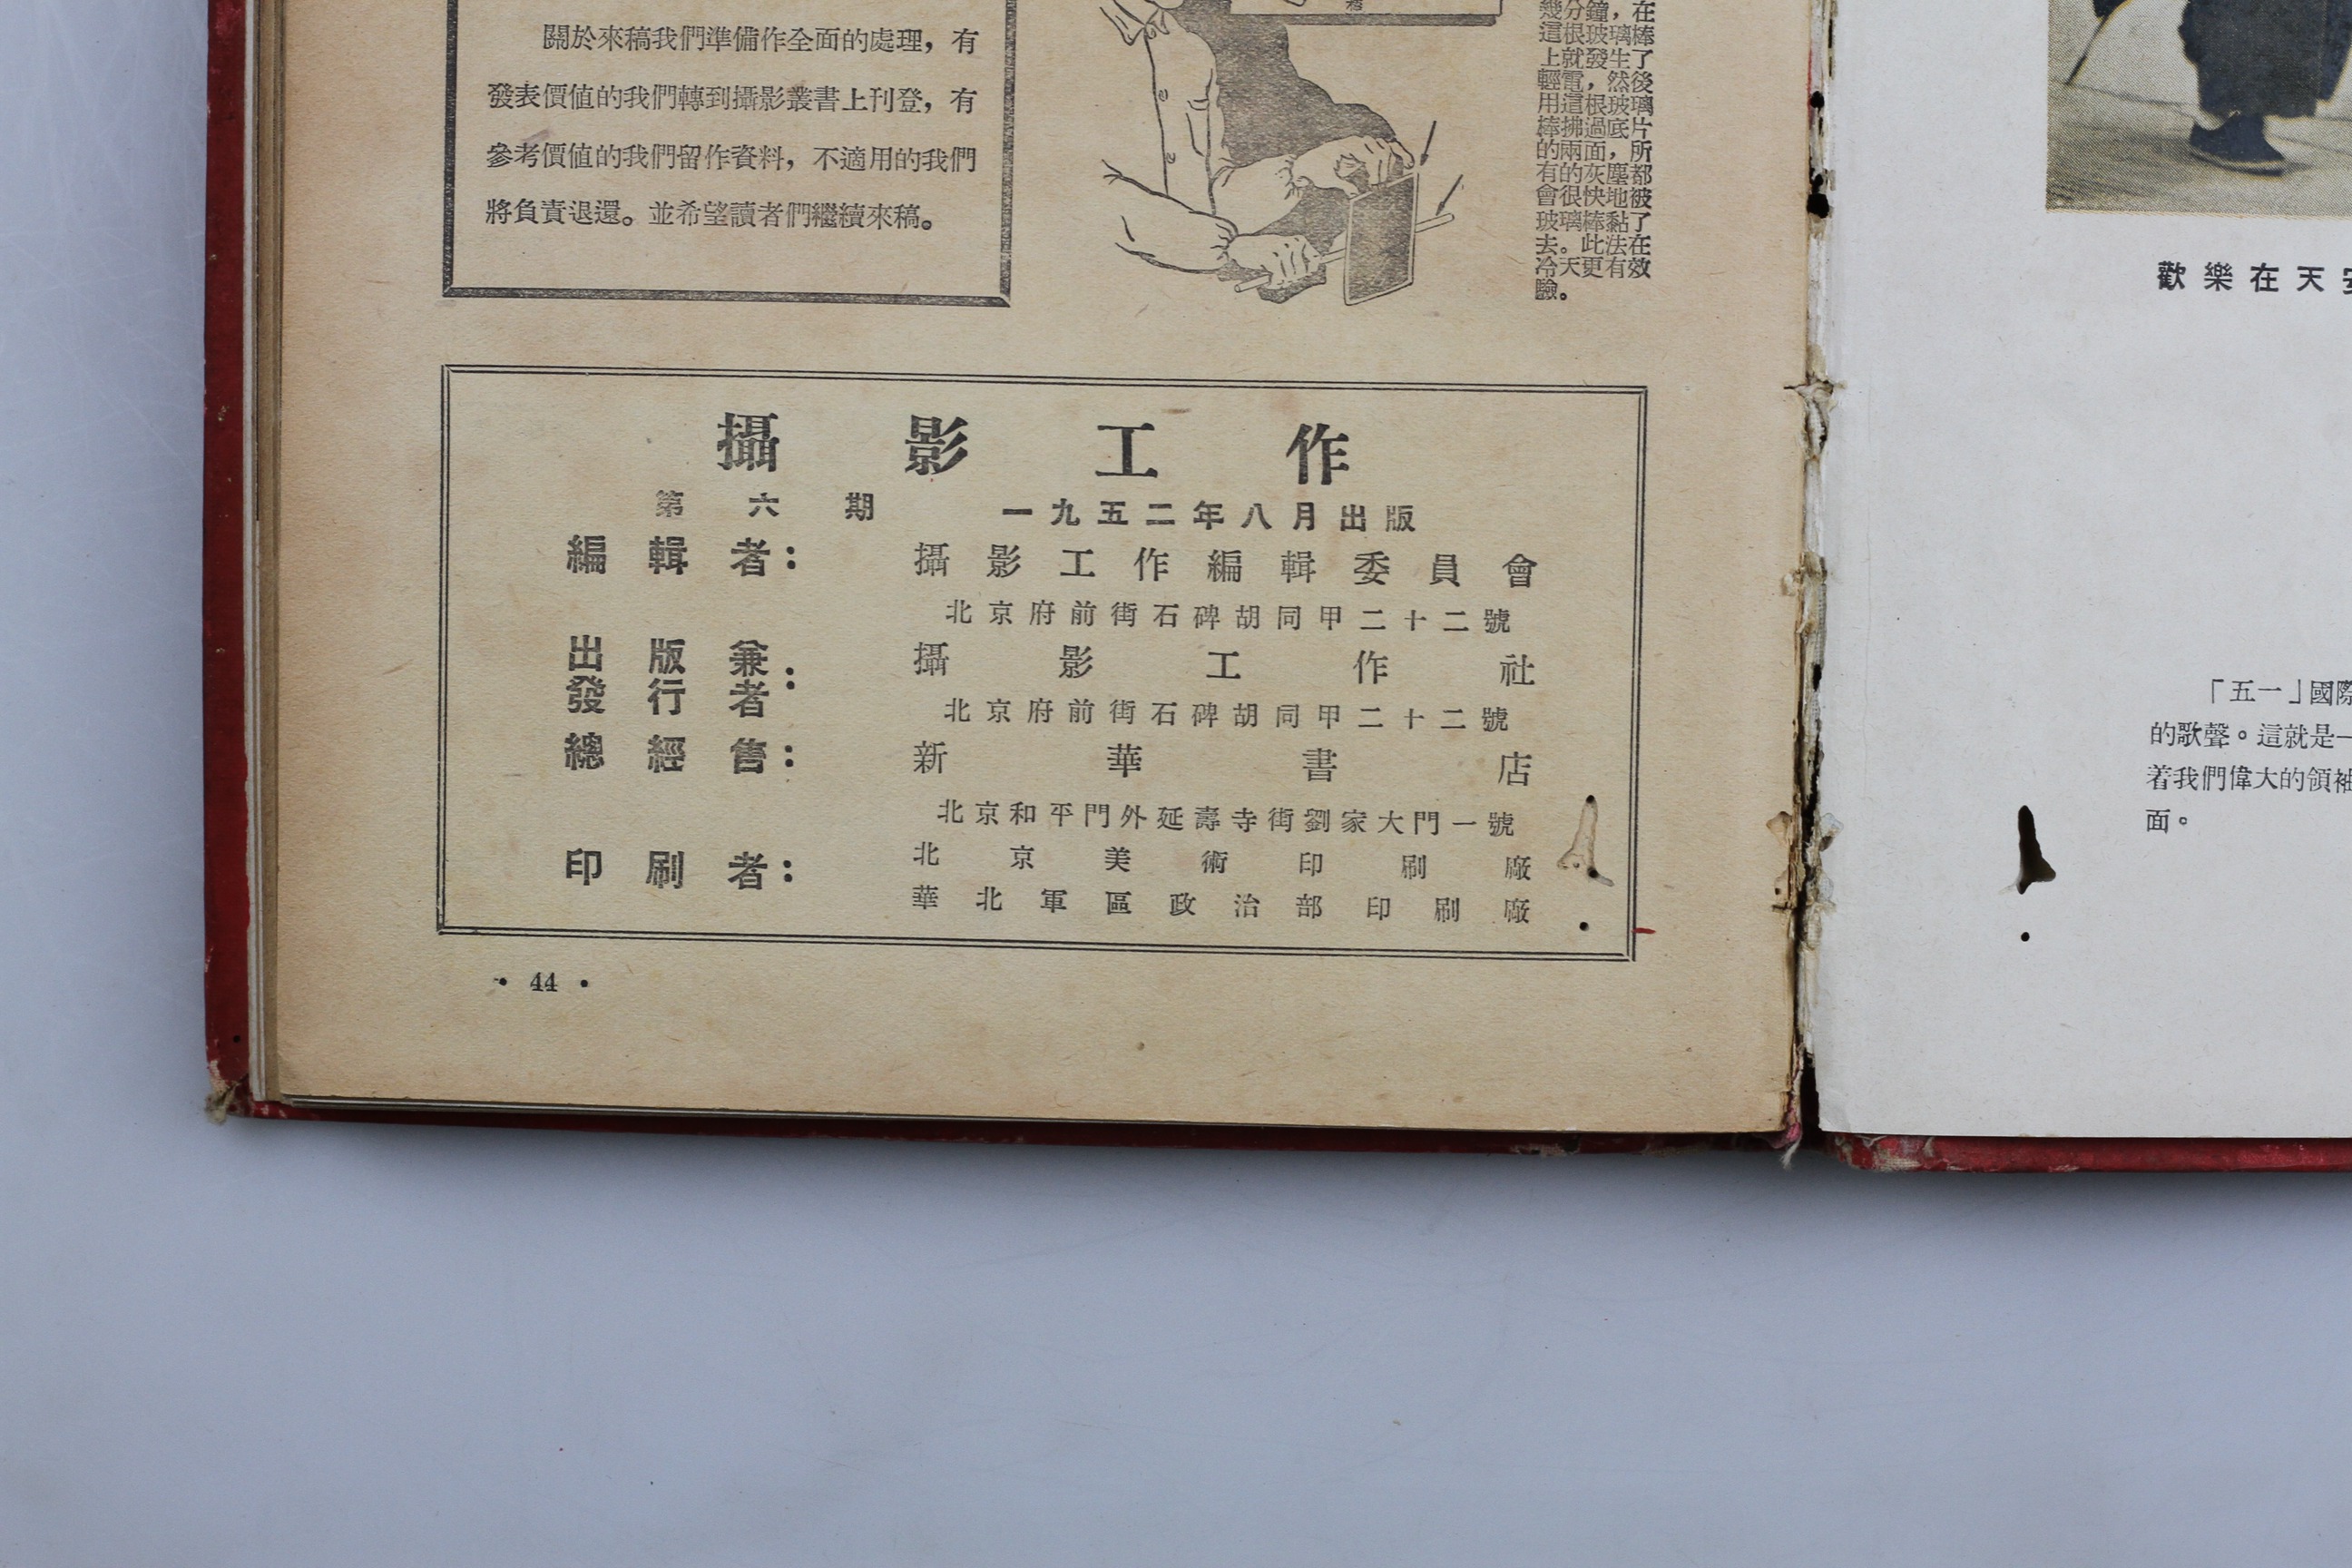 關於來稿我們準備作全面的處理，有
發表價值的我們轉到攝影叢書上刊登，有
參考價值的我們留作資料，不適用的我們
將負責退還。並希望讀者們繼續來稿。
幾分鐘，在
這根玻璃棒
上就發生了
輕電，然後
用這根玻璃
棒拂過底片
的兩面，所
有的灰塵都
會很快地被
玻璃棒黏了
去。此法在
冷天更有效
驗。
攝影工作
第六期 一九五二年八月出版
編輯者： 攝影工作編輯委員會
北京府前街石碑胡同甲二十二號
出版兼
發行者： 攝影工作社
北京府前街石碑胡同甲二十二號
總經售： 新華書店
北京和平門外延壽寺街劉家大門一號
印刷者： 北京美術印刷廠
華北軍區政治部印刷廠
• 44 •
歡樂在天
「五一」國際
的歌聲。這就是一
着我們偉大的領袖
面。